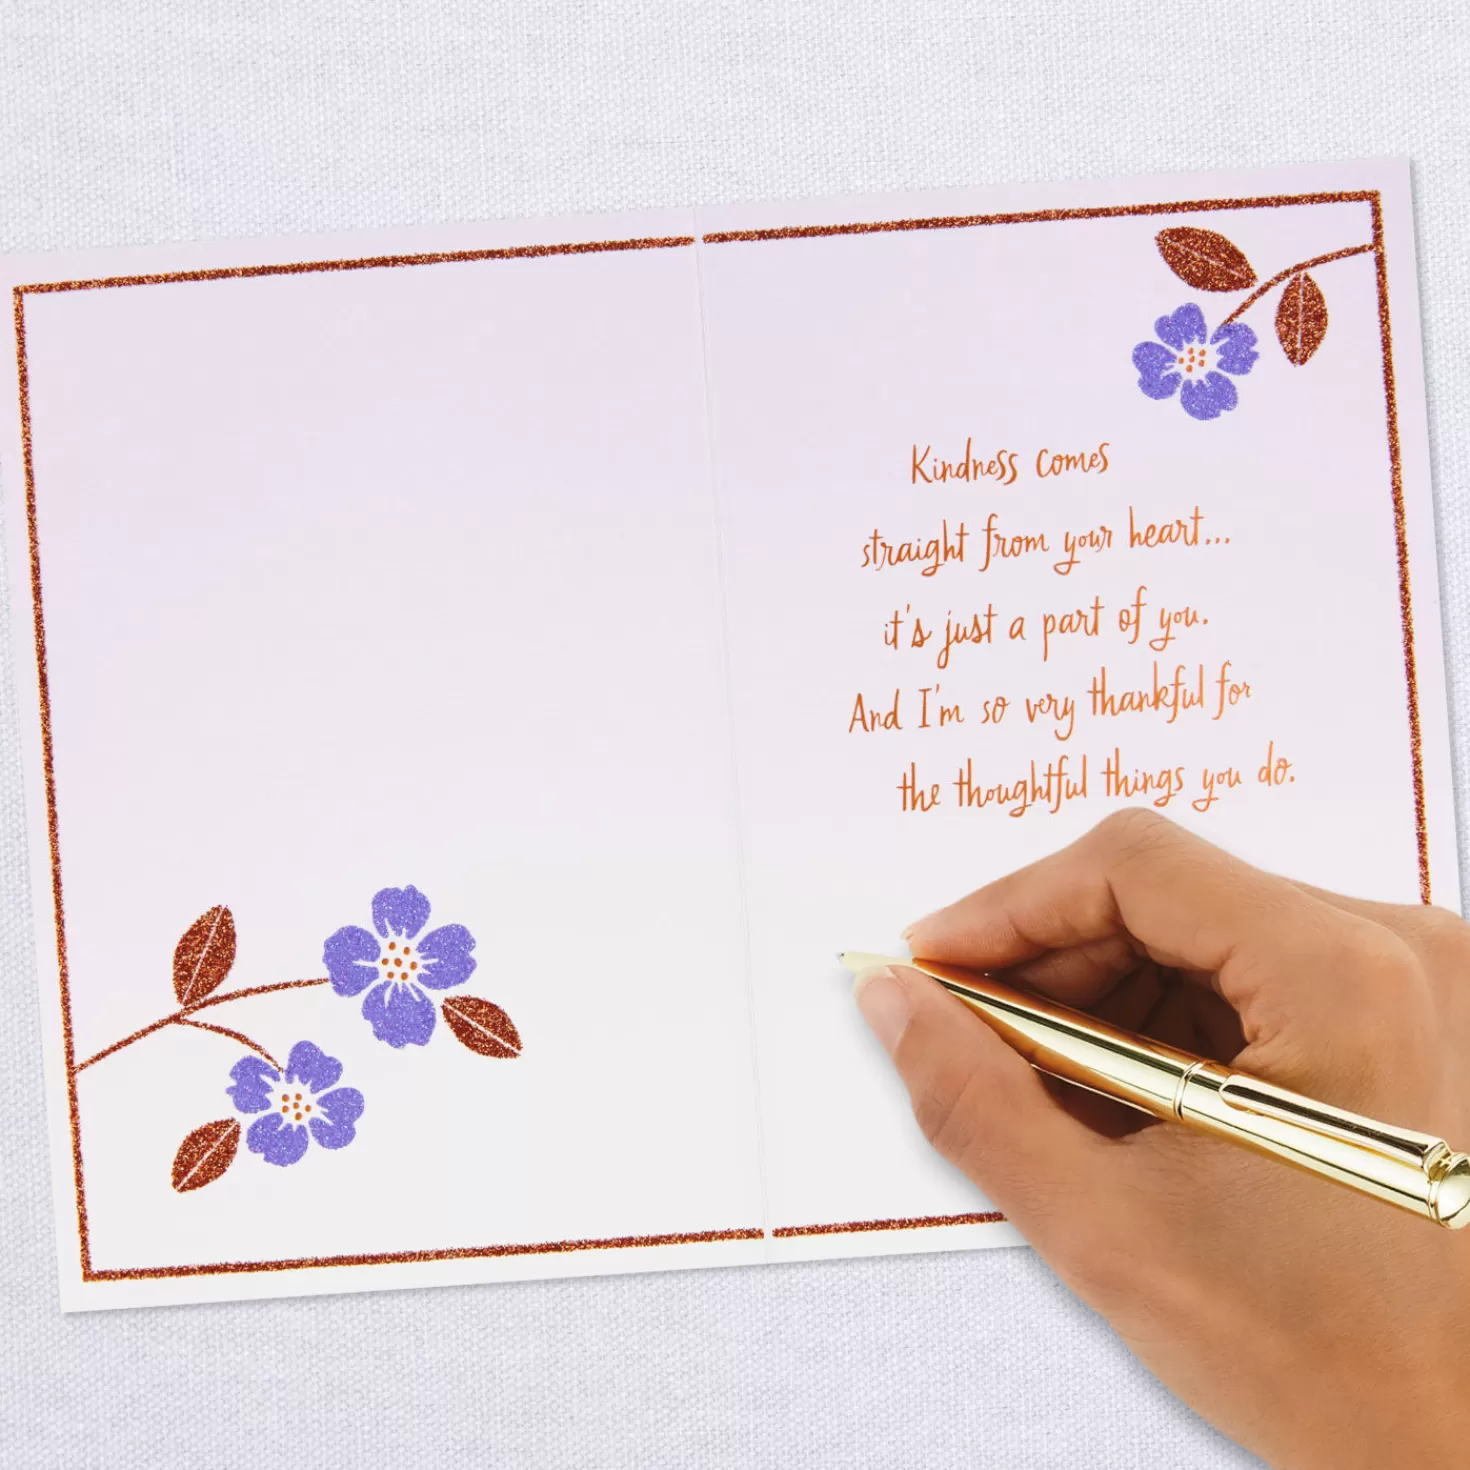 Kindness comes
straight from your heart...
it's just a part of you.
And I'm so very thankful for
the thoughtful things you do.